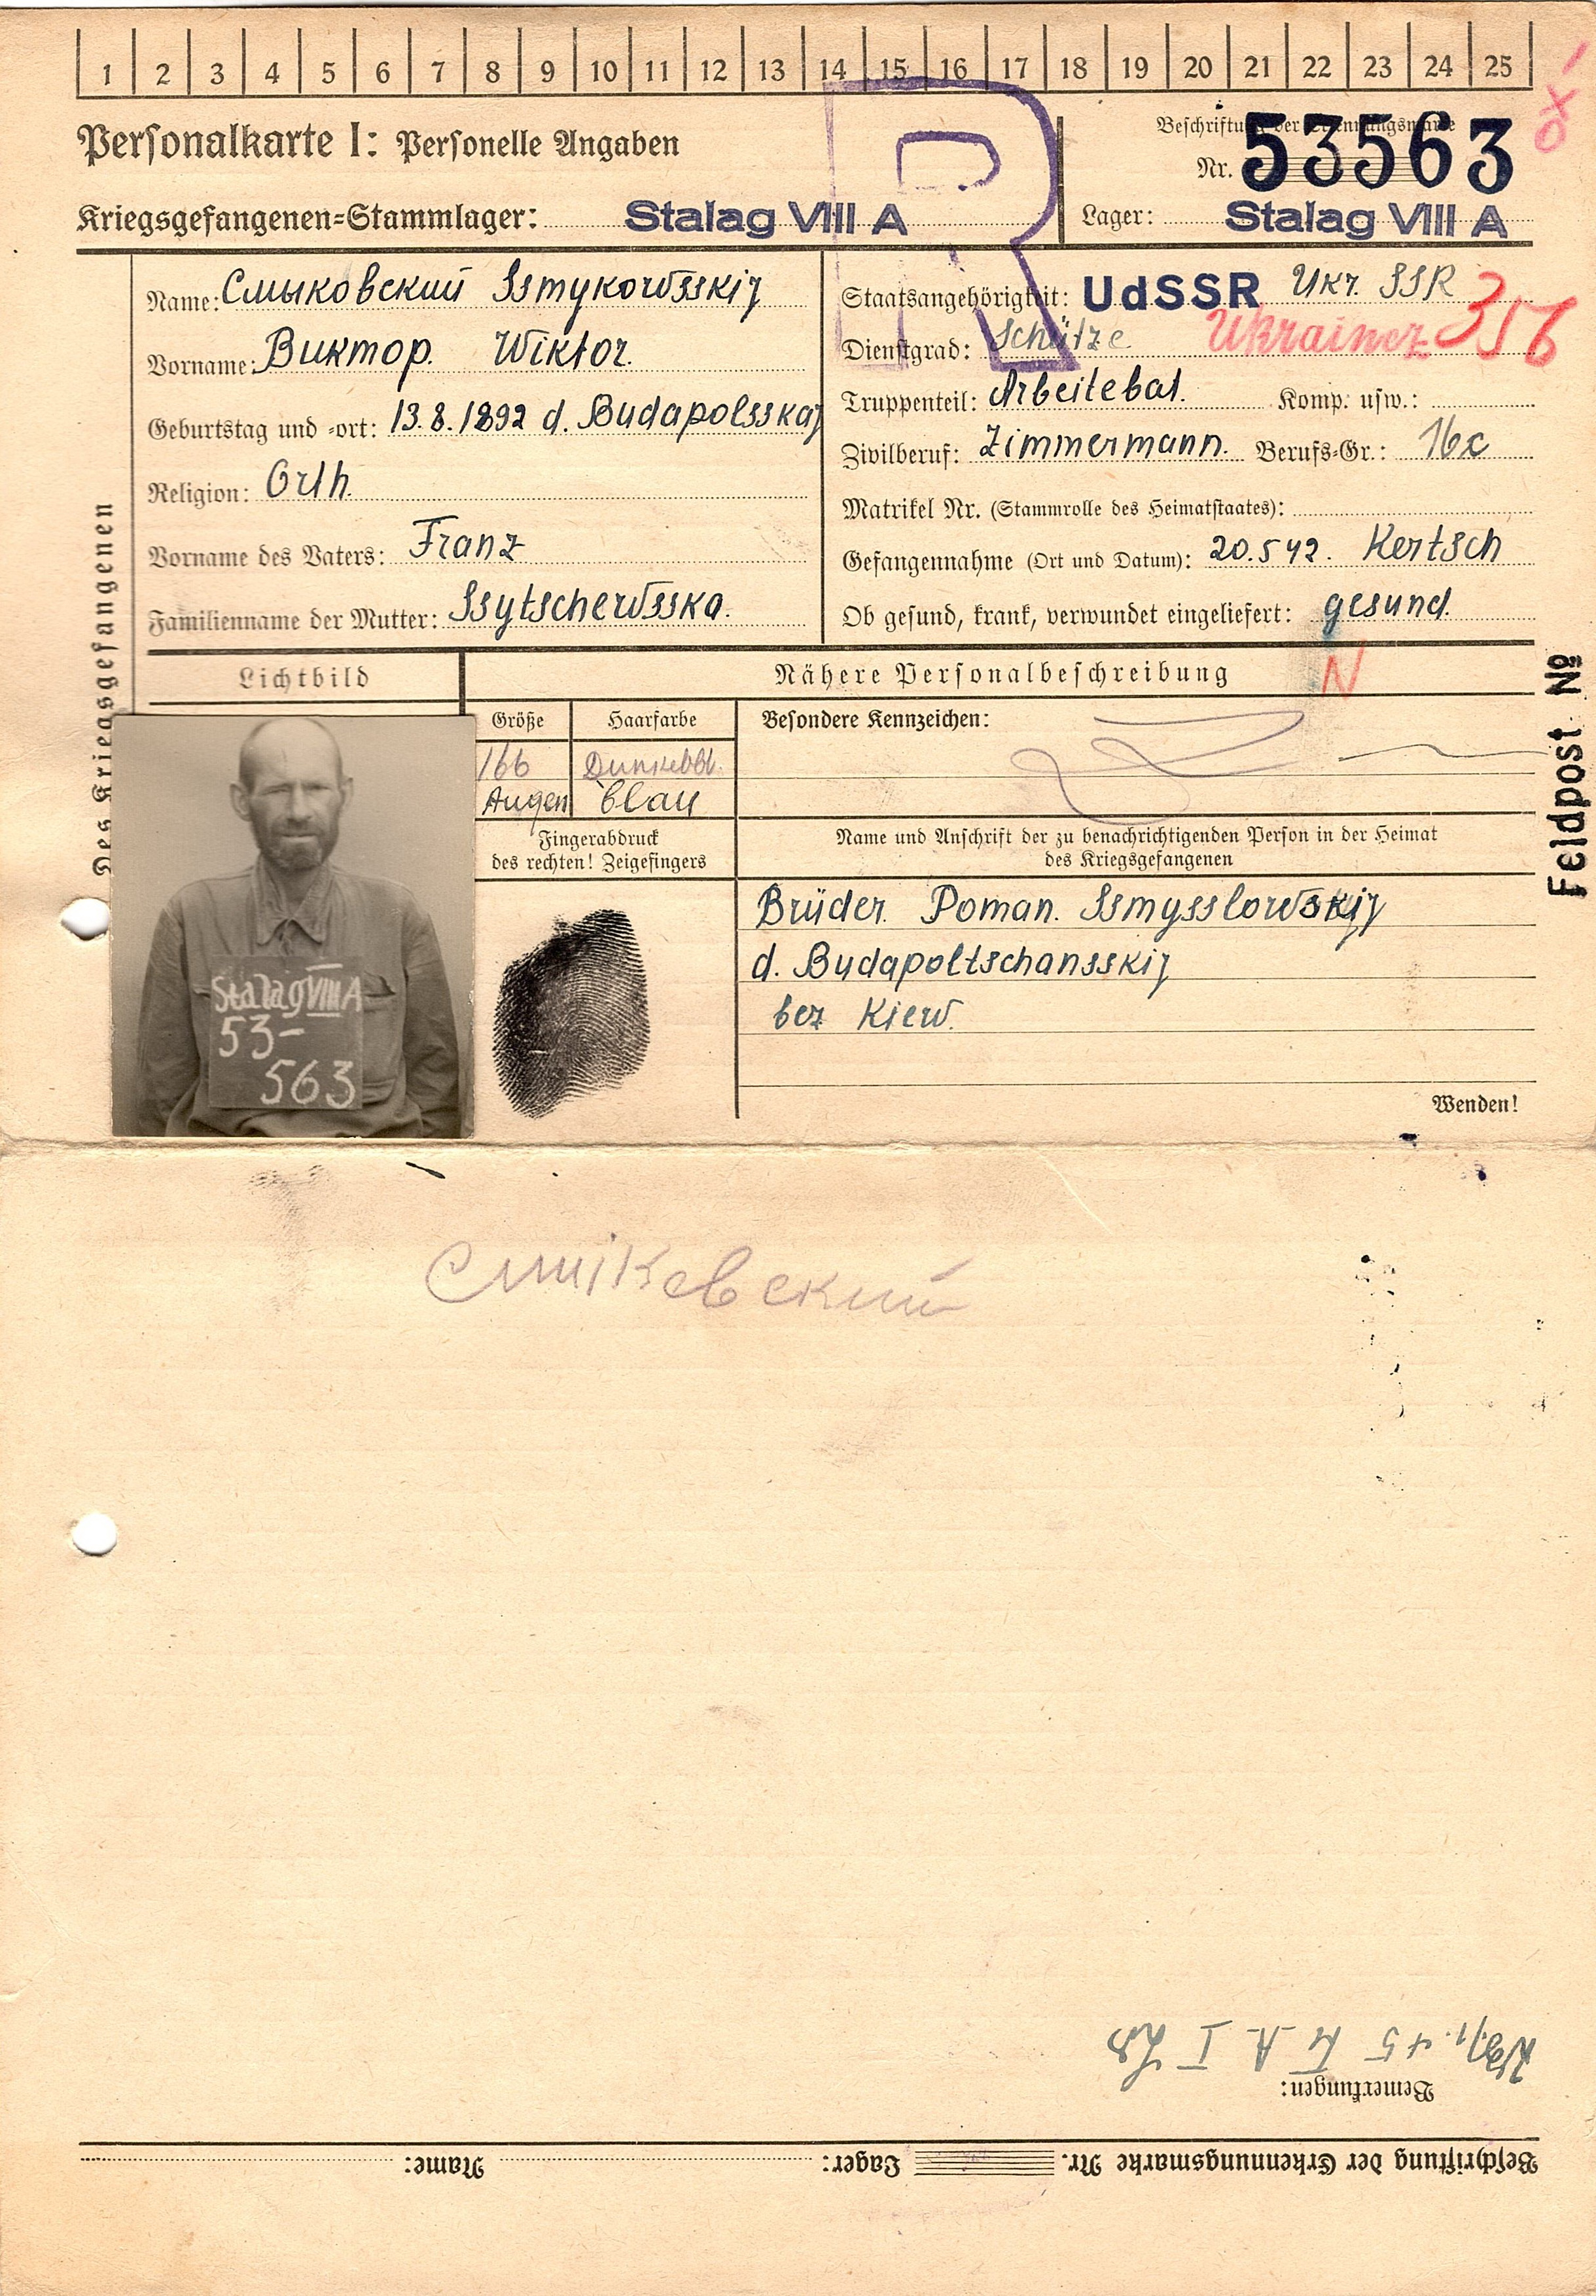 1 2 3 4 5 6 7 8 9 10 11 12 13 14 15 16 17 18 19 20 21 22 23 24 25
Personalkarte I: Personelle Angaben
Beschriftung der Erkennungsmarke
Nr. 53563
Kriegsgefangenen=Stammlager: Stalag VIII A
Lager: Stalag VIII A
R
Des Kriegsgefangenen
Name: Смыковский Ssmykowsskij
Vorname: Виктор. Wiktor.
Geburtstag und =ort: 13.8.1892 d. Budapolsskaj
Religion: Orth.
Vorname des Vaters: Franz
Familienname der Mutter: Ssytschewsska.
Staatsangehörigkeit: UdSSR Ukr. SSR
Dienstgrad: Schütze Ukrainer 356
Truppenteil: Arbeitebat. Komp. usw.:
Zivilberuf: Zimmermann. Berufs=Gr.: 16c
Matrikel Nr. (Stammrolle des Heimatstaates):
Gefangennahme (Ort und Datum): 20.5 42. Kertsch
Ob gesund, krank, verwundet eingeliefert: gesund.
Lichtbild
Nähere Personalbeschreibung
N
Größe Haarfarbe
166 Dunkelbl.
Augen blau
Besondere Kennzeichen:
Fingerabdruck
des rechten! Zeigefingers
Name und Anschrift der zu benachrichtigenden Person in der Heimat
des Kriegsgefangenen
Brüder. Poman. Ssmysslowskij
d. Budapoltschansskij
bez Kiew.
Wenden!
Feldpost №
Stalag VIII A
53-
563
Смиковский
Beschriftung der Erkennungsmarke Nr. Lager: Name:
Bemerkungen: